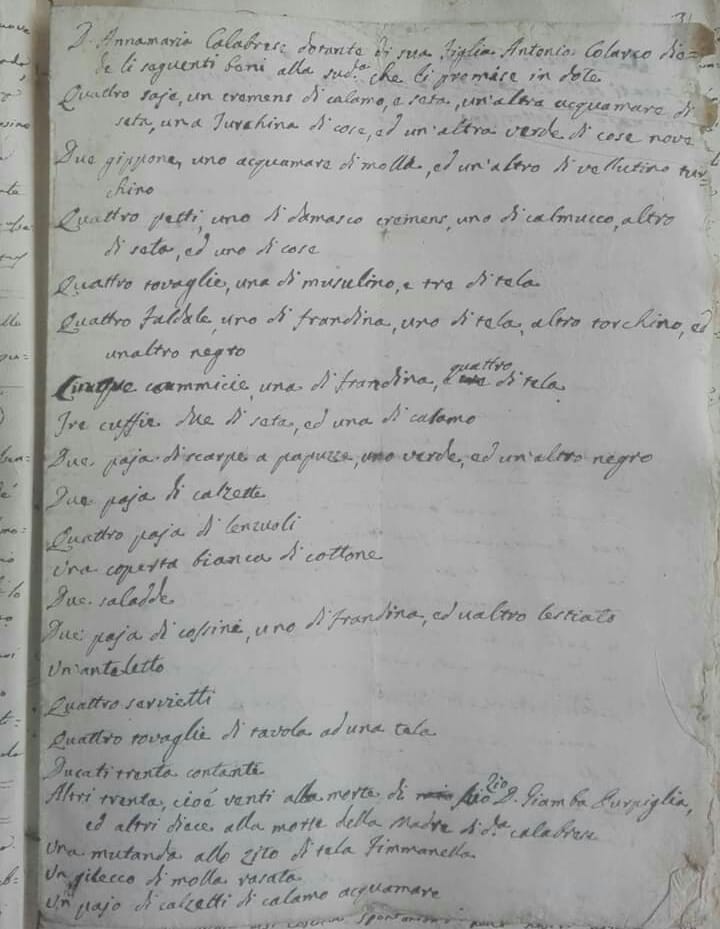 31
D. Annamaria Calabrese dotante di sua figlia Antonia Colarco die=
de li seguenti beni alla sud.a che li premise in dote
Quattro saje, un cremens di calamo, e seta, un'altra acquamare di
seta, una Turchina di cose, ed un'altra verde di cose nove
Due gippone, uno acquamare di molla, ed un'altro di vellutino tur=
chino
Quattro petti, uno di damasco cremens, uno di calmucco, altro
di seta, ed uno di cose
Quattro tovaglie, una di musulino, e tre di tela
Quattro faldale, uno di frandina, uno di tela, altro torchino, ed
unaltro negro
Cinque cammicie, una di frandina, e quattro di tela
Tre cuffie due di seta, ed una di calamo
Due paja di scarpe a papuzze, uno verde, ed un'altro negro
Due paja di calzette
Quattro paja di lenzuoli
una coperta bianca di cottone
Due saladde
Due paja di cossine, uno di frandina, ed ualtro lestiato
un anteletto
Quattro servietti
Quattro tovaglie di tavola ad una tela
Ducati trenta contante
Altri trenta, cioé venti alla morte di Zio D. Giamba Surpiglia,
ed altri diece alla morte della Madre di d.a calabrese
una mutanda allo zito di tela Fimmanella
un gilecco di molla rasata
un pajo di calzetti di calamo acquamare